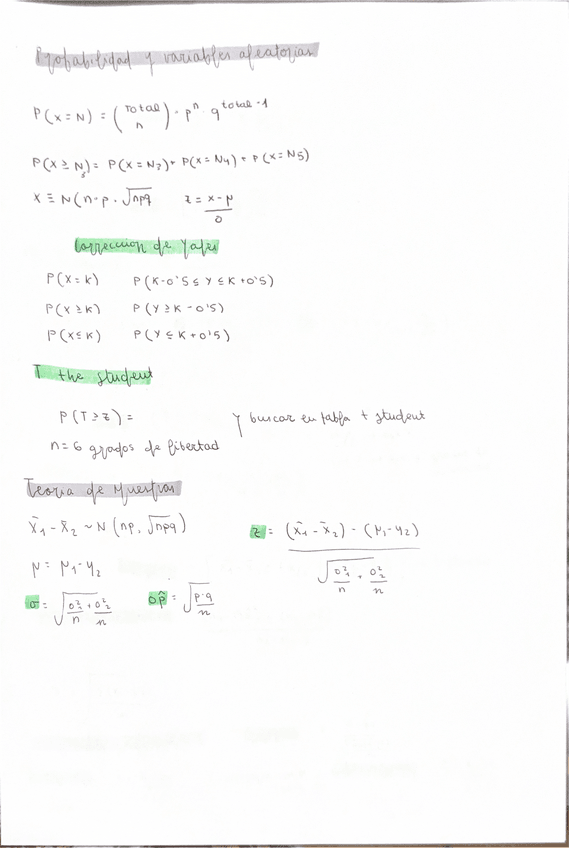 Probabilidad y variables aleatorias
P(X=N) = (Total n) · pⁿ · q^total-1
P(X≥N₃) = P(X=N₃) + P(X=N₄) + P(X=N₅)
X ≡ N(n·p · √npq z = x-μ / σ
Corrección de Yates
P(X=K) P(K-0'5 ≤ Y ≤ K+0'5)
P(X≥K) P(Y≥K-0'5)
P(X≤K) P(Y≤K+0'5)
T the student
P(T≥z) = y buscar en tabla t student
n=6 grados de libertad
Teoria de Muestras
x̄₁ - x̄₂ ~ N(np, √npq) z = (x̄₁ - x̄₂) - (μ₁-μ₂) / √(σ²₁/n + σ²₂/n)
μ = μ₁-μ₂
σ = √(σ²₁/n + σ²₂/n) σp̂ = √(p·q/n)